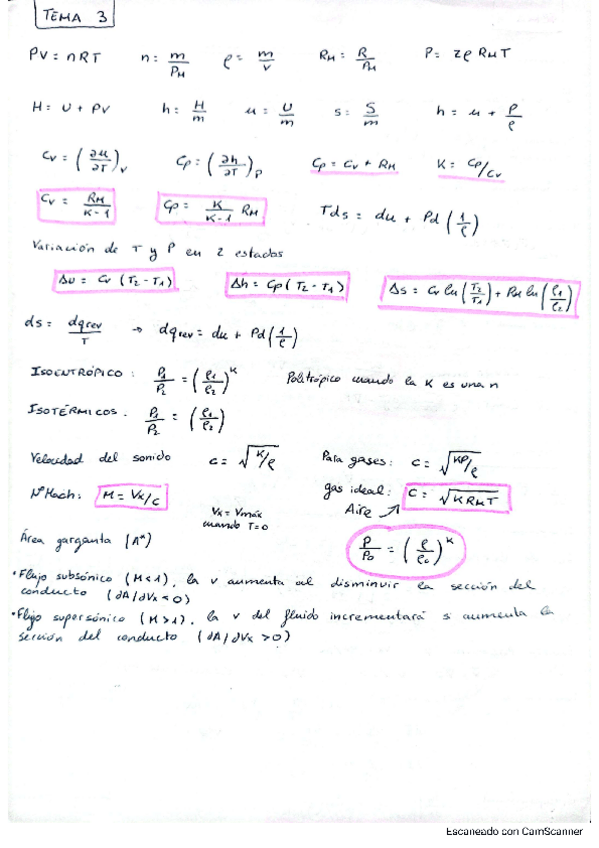 TEMA 3
PV = nRT   n = m/PM   ρ = m/V   RM = R/PM   P = zρRMT
H = U + PV   h = H/m   u = U/m   s = S/m   h = u + P/ρ
Cv = (∂u/∂T)v   Cp = (∂h/∂T)p   Cp = Cv + RM   K = Cp/Cv
Cv = RM/K-1   Cp = K/K-1 RM   Tds = du + Pd(1/ρ)
Variación de T y P en 2 estados
Δu = Cv (T2 - T1)   Δh = Cp (T2 - T1)   Δs = Cv ln(T2/T1) + RM ln(ρ1/ρ2)
ds = dqrev/T → dqrev = du + Pd(1/ρ)
ISOENTRÓPICO: P1/P2 = (ρ1/ρ2)^K   Politrópico cuando la K es una n
ISOTÉRMICOS: P1/P2 = (ρ1/ρ2)
Velocidad del sonido   c = √K/ρ   Para gases: c = √KP/ρ
NºMach: M = Vx/c   gas ideal: C = √KRMT
Vx = Vmáx   Aire ↗
cuando T=0
Área garganta (A*)   P/P0 = (ρ/ρ0)^K
·Flujo subsónico (M<1), la v aumenta al disminuir la sección del
conducto (∂A/∂Vx < 0)
·Flujo supersónico (M>1), la v del fluido incrementará si aumenta la
sección del conducto (∂A/∂Vx > 0)
Escaneado con CamScanner